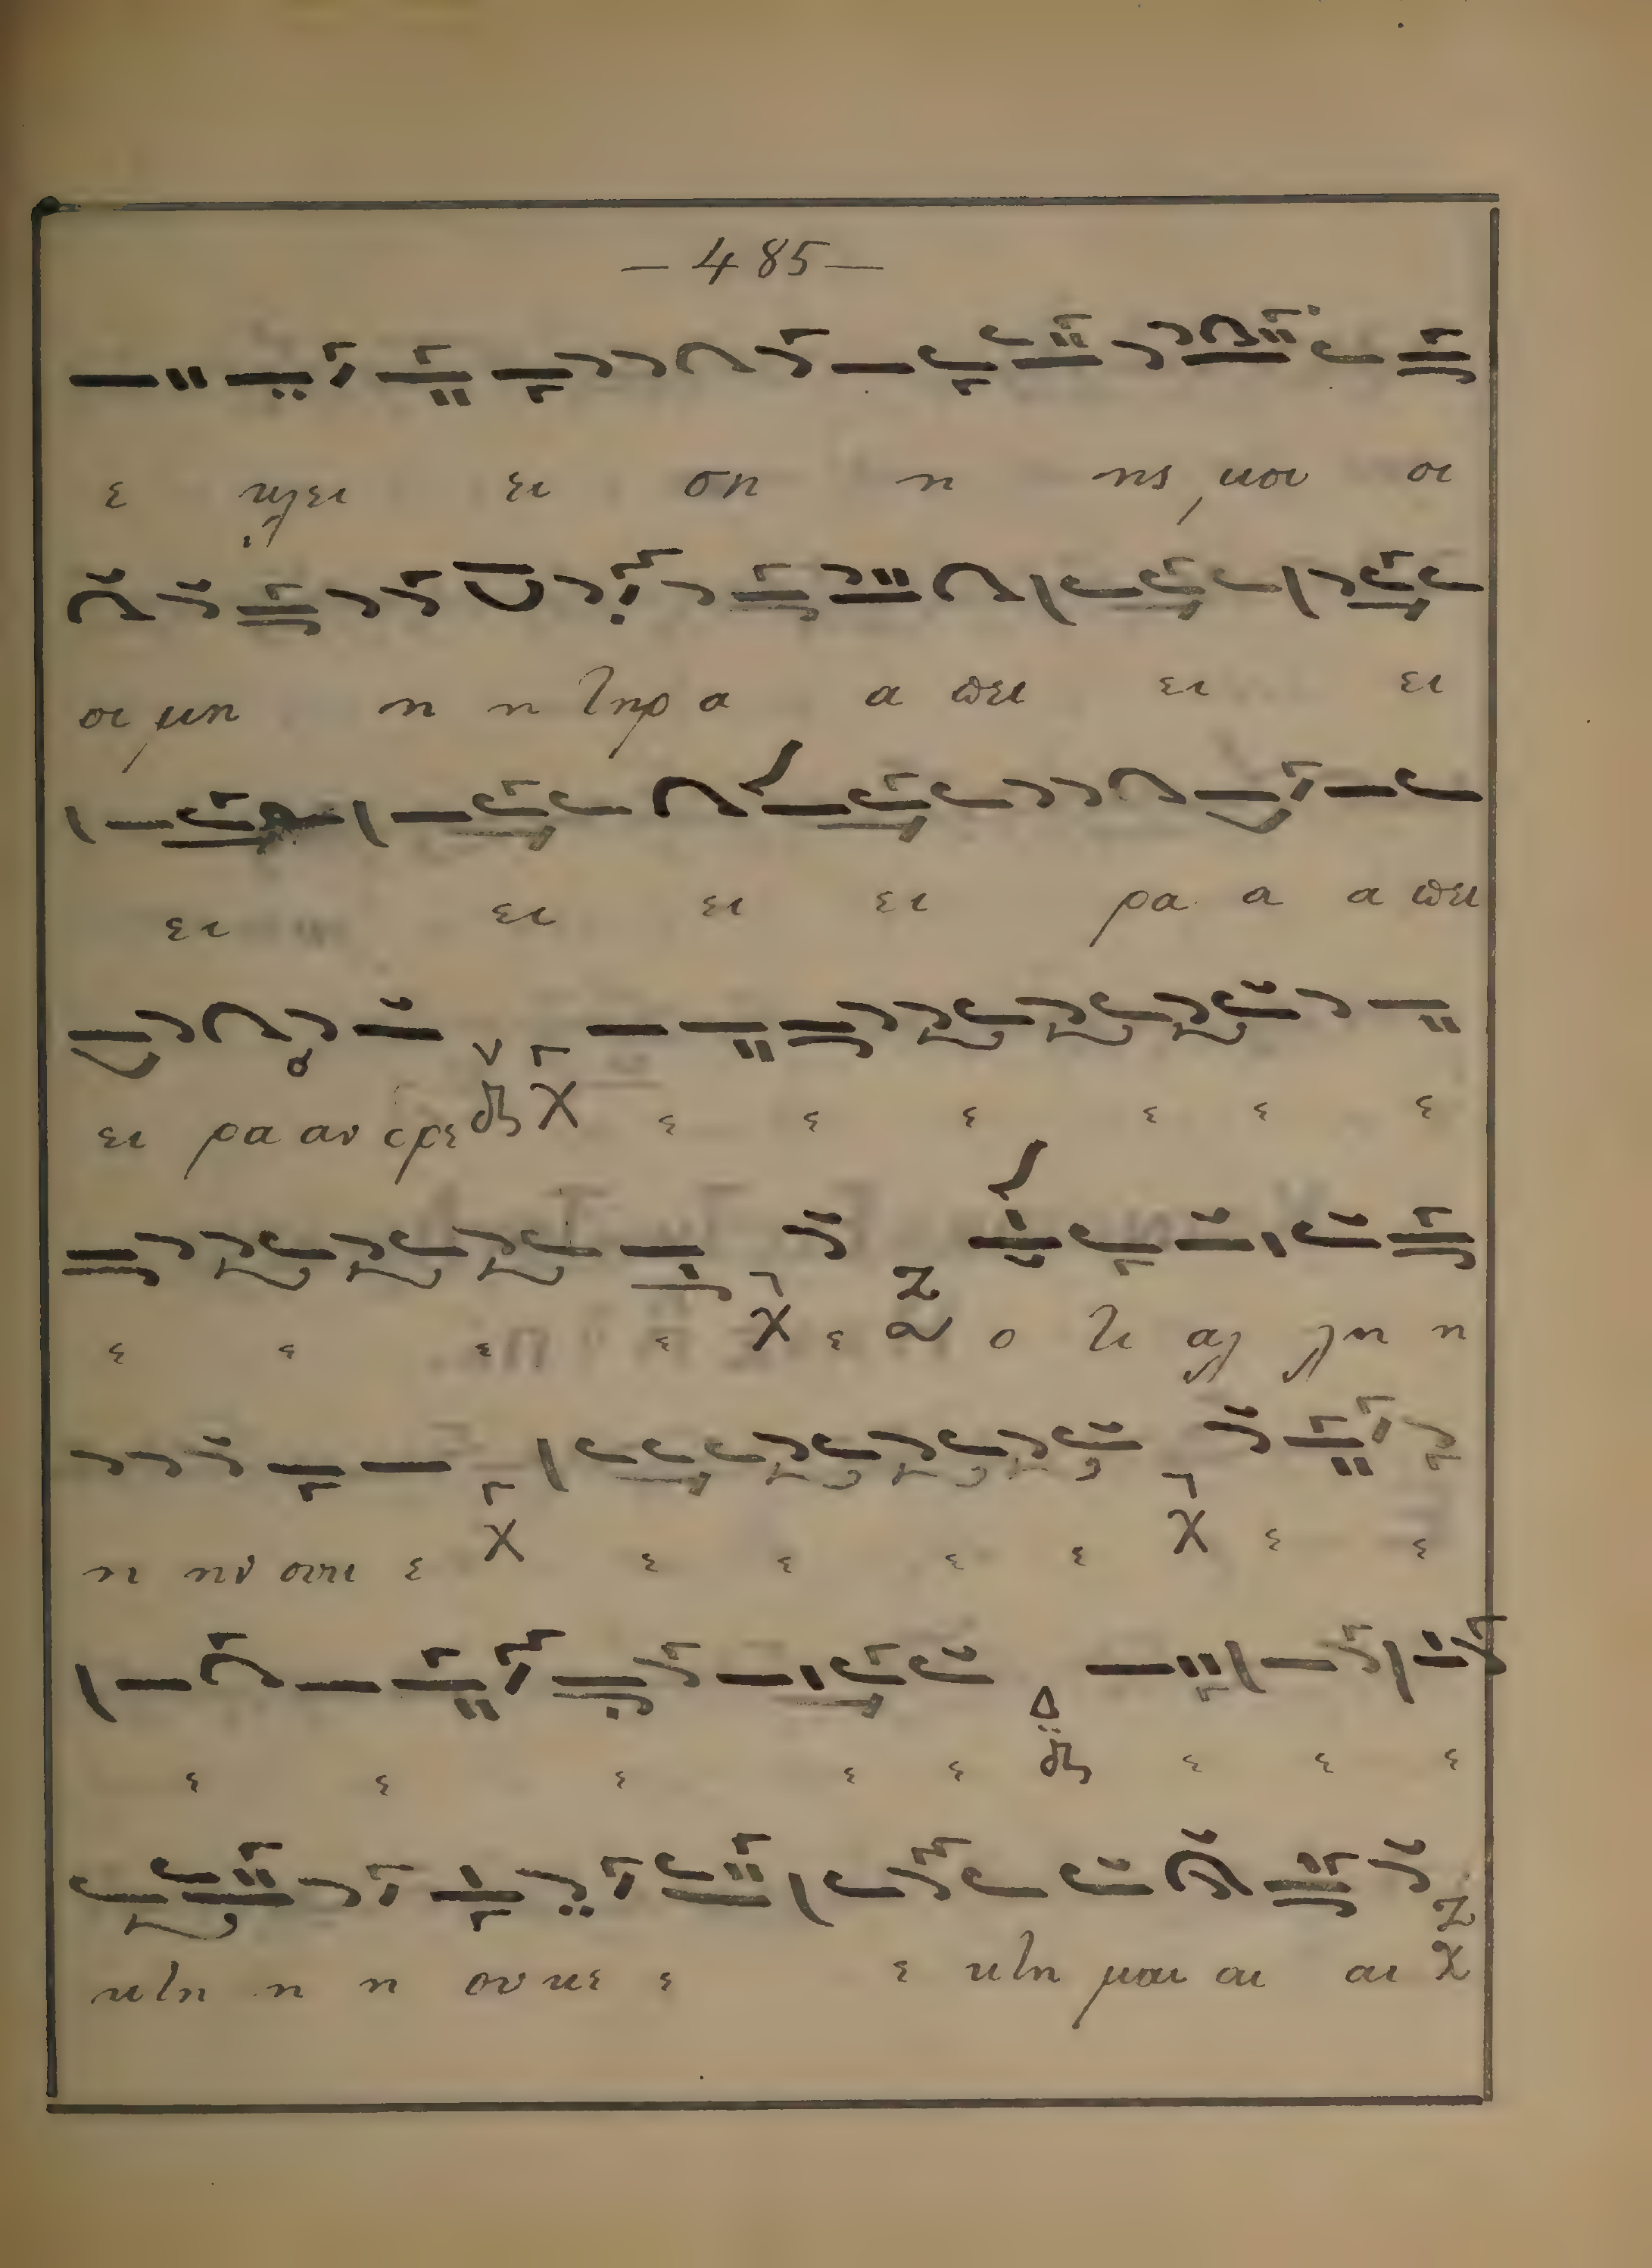 — 485 —
ε κλει ει ση η ης μοι οι
οι μη η η τηρ α α πει ει ει
ει ει ει ει ρα α α πει
ει ρα αν ε ε ε ε ε ε
ε ε ε ε ε ο τι αλ λη η
η ην ουκ ε ε ε ε ε ε ε
ε ε ε ε ε ε ε ε
κτη η η ου κε ε ε κτη μαι αι αι